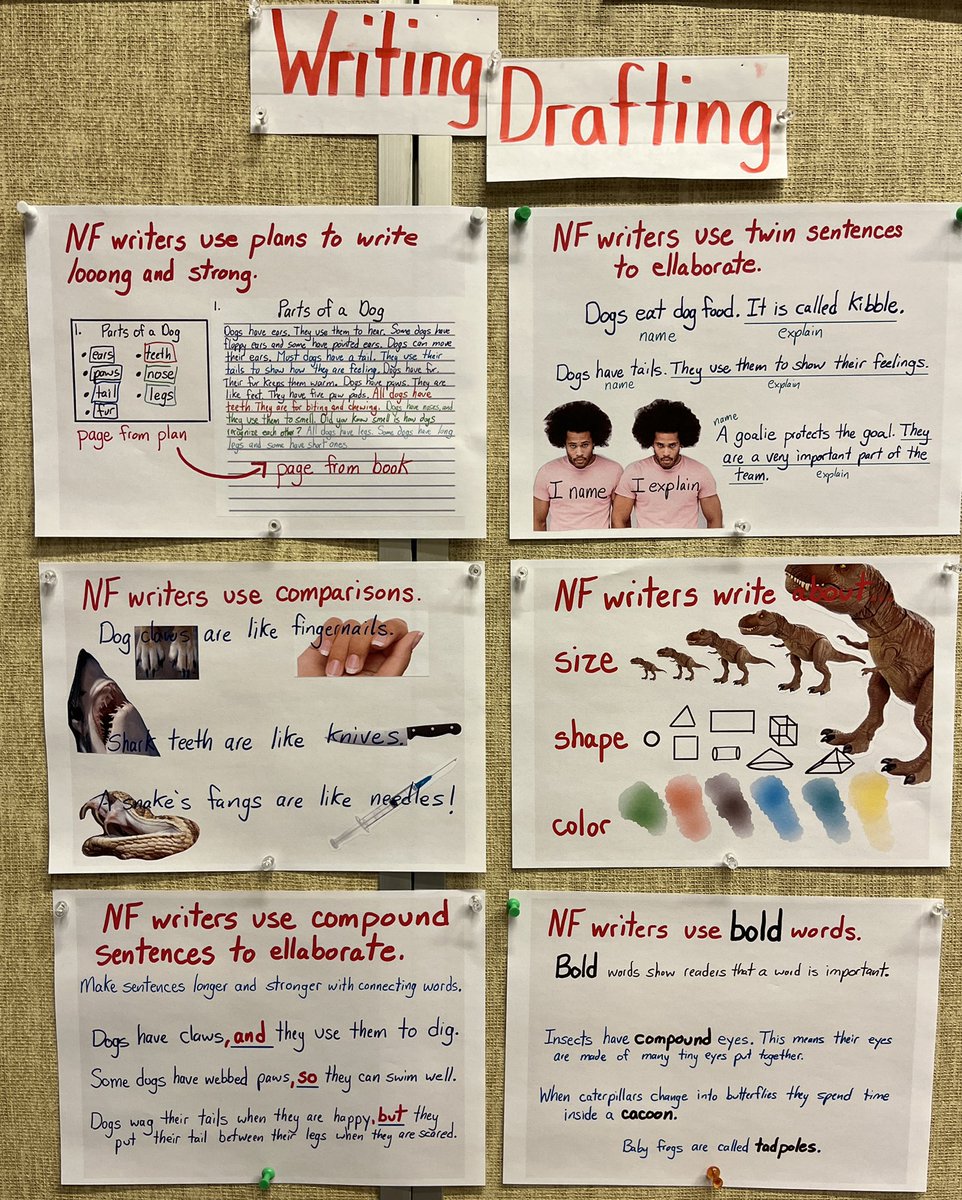 Writing
Drafting
NF writers use plans to write
looong and strong.
1. Parts of a Dog
• ears • teeth
• paws • nose
• tail • legs
• fur
page from plan
1. Parts of a Dog
Dogs have ears. They use them to hear. Some dogs have
floppy ears and some have pointed ears. Dogs can move
their ears. Most dogs have a tail. They use their
tails to show how they are feeling. Dogs have fur.
Their fur keeps them warm. Dogs have paws. They are
like feet. They have five paw pads. All dogs have
teeth. They are for biting and chewing. Dogs have noses, and
they use them to smell. Did you know smell is how dogs
recognize each other? All dogs have legs. Some dogs have long
legs and some have short ones.
page from book
NF writers use twin sentences
to ellaborate.
Dogs eat dog food. It is called kibble.
name explain
Dogs have tails. They use them to show their feelings.
name explain
name
A goalie protects the goal. They
are a very important part of the
team. explain
I name I explain
NF writers use comparisons.
Dog claws are like fingernails.
Shark teeth are like knives.
A snake's fangs are like needles!
NF writers write about.
size
shape
color
NF writers use compound
sentences to ellaborate.
Make sentences longer and stronger with connecting words.
Dogs have claws, and they use them to dig.
Some dogs have webbed paws, so they can swim well.
Dogs wag their tails when they are happy, but they
put their tail between their legs when they are scared.
NF writers use bold words.
Bold words show readers that a word is important.
Insects have compound eyes. This means their eyes
are made of many tiny eyes put together.
When caterpillars change into butterflies they spend time
inside a cacoon.
Baby frogs are called tadpoles.